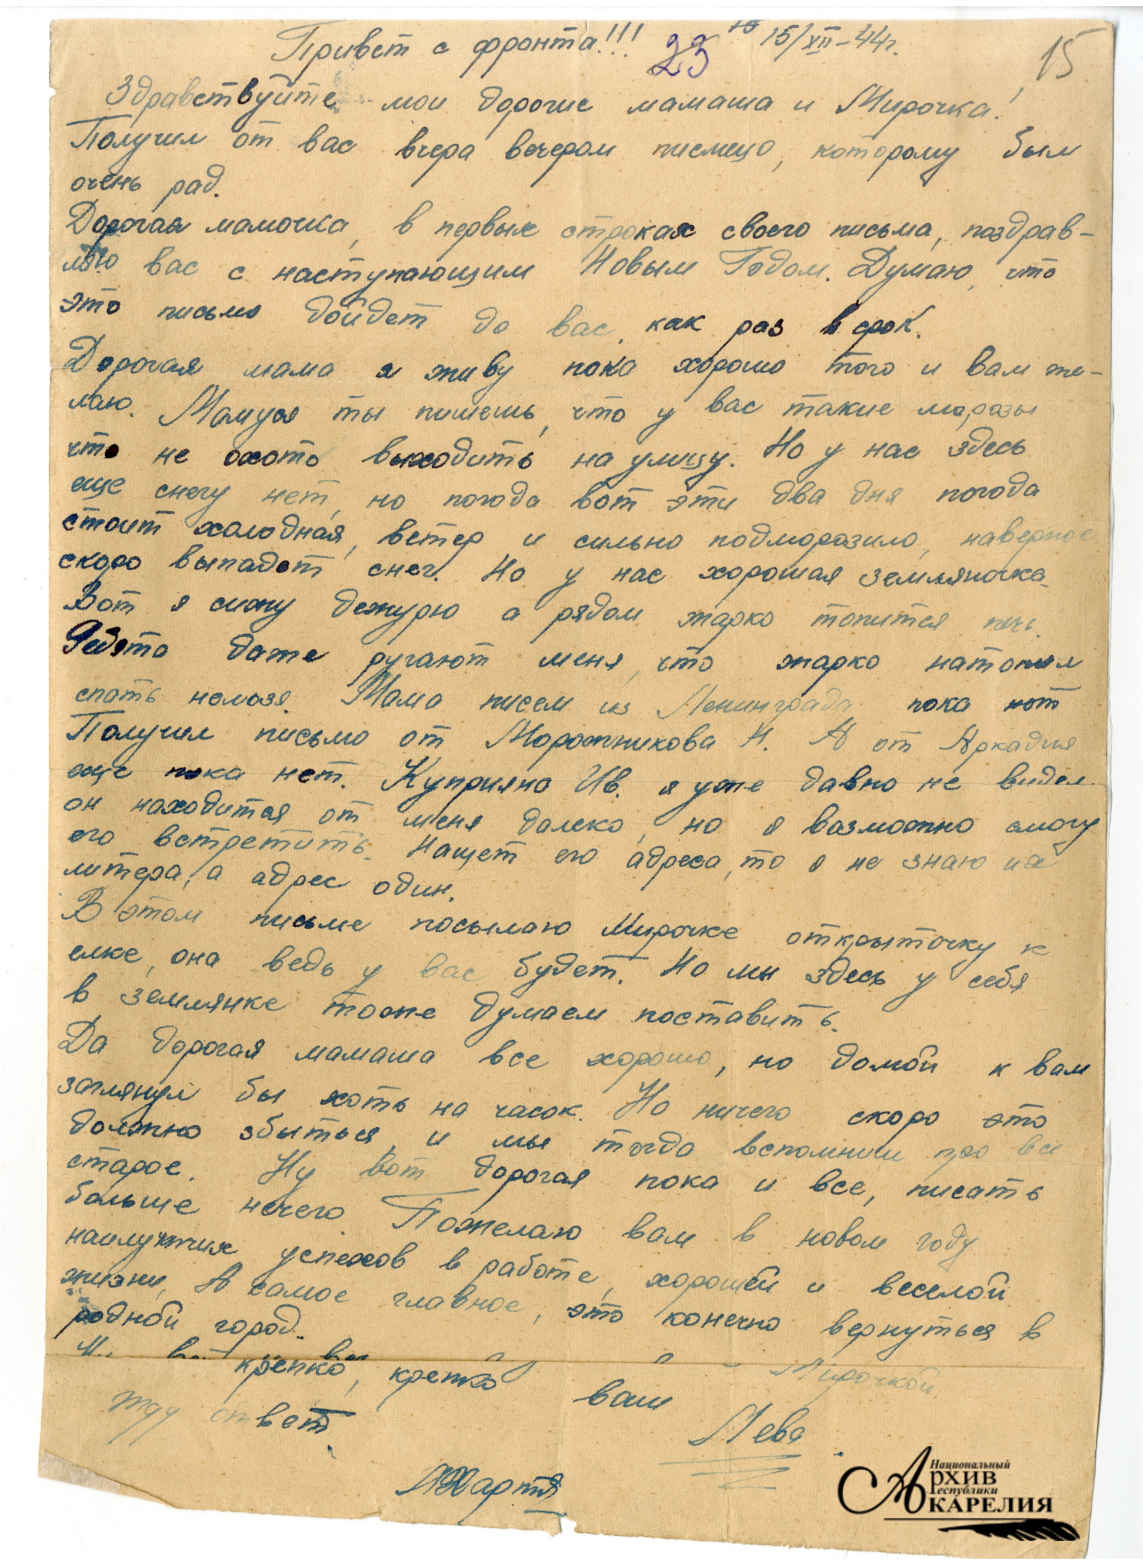 Привет с фронта!!! 23 15/XII-44г. 15
Здравствуйте мои дорогие мамаша и Мирочка!
Получил от вас вчера вечером писмецо, которому был
очень рад.
Дорогая мамочка, в первых строках своего письма, поздрав-
ляю вас с наступающим Новым Годом. Думаю, что
это письмо дойдет до вас, как раз в срок.
Дорогая мама я живу пока хорошо того и вам же-
лаю. Мамуся ты пишешь, что у вас такие морозы
что не охота выходить на улицу. Но у нас здесь
еще снегу нет, но погода вот эти два дня погода
стоит холодная, ветер и сильно подморозило, наверное
скоро выпадет снег. Но у нас хорошая земляночка.
Вот я сижу дежурю а рядом жарко топится печь.
Ребята даже ругают меня, что жарко натопил
спать нельзя. Мама писем из Ленинграда пока нет
Получил письмо от Морожникова Н. А от Аркадия
еще пока нет. Куприяна Ив. я уже давно не видел.
он находится от меня далеко, но я возможно смогу
его встретить. Нащет его адреса, то я не знаю
литера, а адрес один.
В этом письме посылаю Мирочке открыточку к
елке, она ведь у вас будет. Но мы здесь у себя
в землянке тоже думаем поставить.
Да дорогая мамаша все хорошо, но домой к вам
заглянул бы хоть на часок. Но ничего скоро это
должно збыться, и мы тогда вспомним про все
старое. Ну вот дорогая пока и все, писать
больше нечего. Пожелаю вам в новом году
наилучших успехов в работе, хорошей и веселой
жизни, А самое главное, это конечно вернуться в
родной город.
Мирочкой
крепко, крепко ваш
Жду ответ. Лева
Национальный
Архив
Республики
Карелия